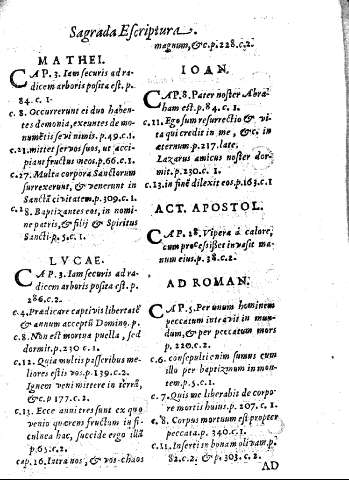 Sagrada Escriptura.
MATHEI.
CAP. 3. Iam securis ad ra-
dicem arboris posita est. p.
84. c. 1.
c. 8. Occurrerunt ei duo haben-
tes demonia, exeuntes de mo-
numētis sevi nimis. p. 49. c. 1.
c. 21. mittet servos suos, ut acci-
piant fructus meos. p. 66. c. 1.
c. 27. Multa corpora Sanctorum
surrexerunt, & venerunt in
Sanctā civitatem. p. 309. c. 1.
c. 28. Baptizantes eos, in nomi-
ne patris, & filij & Spiritus
Sancti. p. 5. c. 1.
LVCAE.
CAP. 3. Iam securis ad ra-
dicem arboris posita est. p.
286. c. 2.
c. 4. Prædicare captivis libertatē
& annum acceptū Domino. p.
c. 8. Non est mortua puella, sed
dormit. p. 230 c. 1.
c. 12. Quia multis passeribus me-
liores estis vos. p. 139. c. 2.
Ignem veni mittere in terrā,
& c. p 177. c. 2.
c. 13. Ecce anni tres sunt ex quo
venio quærens fructum in fi-
culnea hac, succide ergo illā
p. 65. c. 2.
cap. 16. Intra nos, & vos chaos
magnum, & c. p. 228. c. 2.
IOAN.
CAP. 8. Pater noster Abra-
ham est. p. 84. c. 1.
c. 11. Ego sum resurrectio & vi-
ta qui credit in me, & c. in
æternum. p. 217. late.
Lazarus amicus noster dor-
mit. p. 230. c. 1.
c. 13. in finē dilexit eos. p. 163. c. 1
ACT. APOSTOL.
CAP. 28. Vipera à calore,
cum processisset invasit ma-
num eius. p. 38. c. 2.
AD ROMAN.
CAP. 5. Per unum hominem
peccatum intravit in mun-
dum, & per peccatum mors
p. 220. c. 2.
c. 6. consepulti enim sumus cum
illo per baptismum in mor-
tem. p. 5. c. 1.
c. 7. Quis me liberabit de corpo-
re mortis huius. p. 207. c. 1.
c. 8. Corpus mortuum est propter
peccata. p. 340. c. 1.
c. 11. Inserti in bonam olivam. p.
82. c. 2. & p. 303. c. 2.
AD